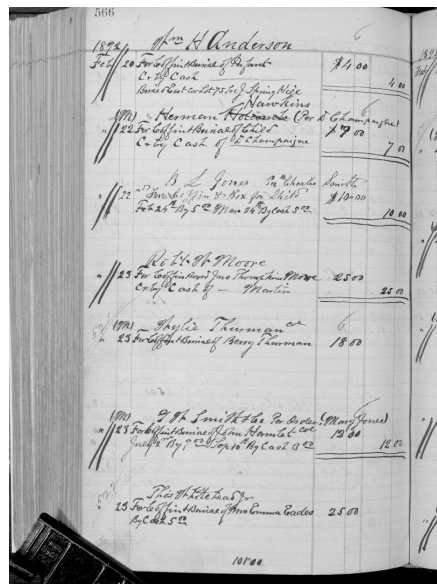 566
1892 Wm H Anderson
Feb 20 For Coffin & Burial of Infant $4 00
Cr by Cash 4 00
Buried East Cor Lot 75 Sec J Spring
Hawkins
(M) Herman (Per D Champaigne)
22 For Coffin & Burial of Child $7 00
Cr by Cash of D Champaigne 7 00
B L Jones Per Charles
22 For Coffin & Box for Child $10 00
Feb 24th By 5 00 Mar 24th By Cash 5 00 10 00
Robt W Moore
" 23 For Coffin Jno Thompkins Moore 25 00
Cr by Cash of — Martin 25 00
(M) Wylie Thurman col
23 For Coffin & Burial of Berry Thurman 18 00
(M) Smith & Co Per Order (Mary Jones)
23 For Coffin & Burial of John Hamlet col 12 00
By Cash 12 00
Thos Whitehead Jr
23 For Coffin & Burial of Mrs Emma Eades 25 00
By Cash 5 00
101 00